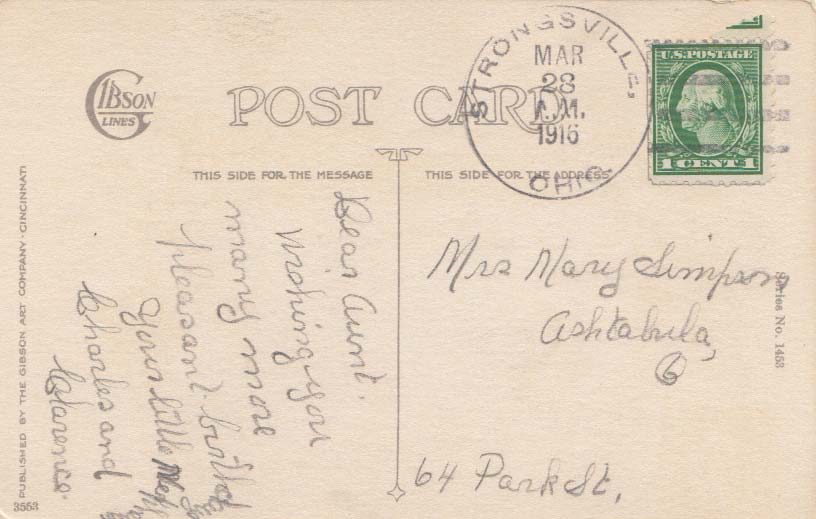 GIBSON
LINES
POST CARD
STRONGSVILLE,
MAR
28
A.M.
1916
OHIO.
U.S. POSTAGE
1 CENT 1
THIS SIDE FOR THE MESSAGE
THIS SIDE FOR THE ADDRESS
Dear Aunt.
Wishing you
many more
pleasant
Your little
Charles and
Clarence.
Mrs Mary Simpson
Ashtabula,
O
64 Park St,
Series No. 1453
PUBLISHED BY THE GIBSON ART COMPANY · CINCINNATI
3553